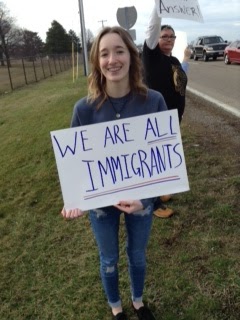 ANSWER!
WE ARE ALL
IMMIGRANTS